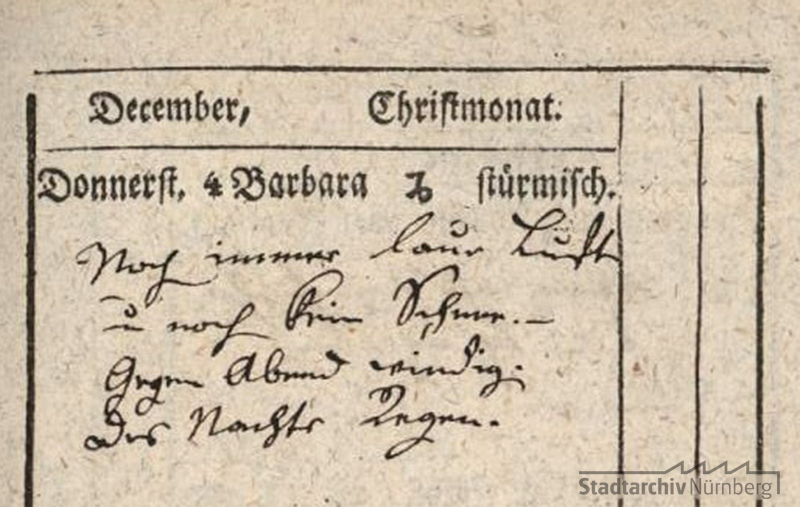 December, Christmonat.
Donnerst. 4 Barbara ♑ stürmisch.
Noch immer laue Luft
u noch kein Schnee. –
Gegen Abend windig.
Des Nachts Regen.
Stadtarchiv Nürnberg